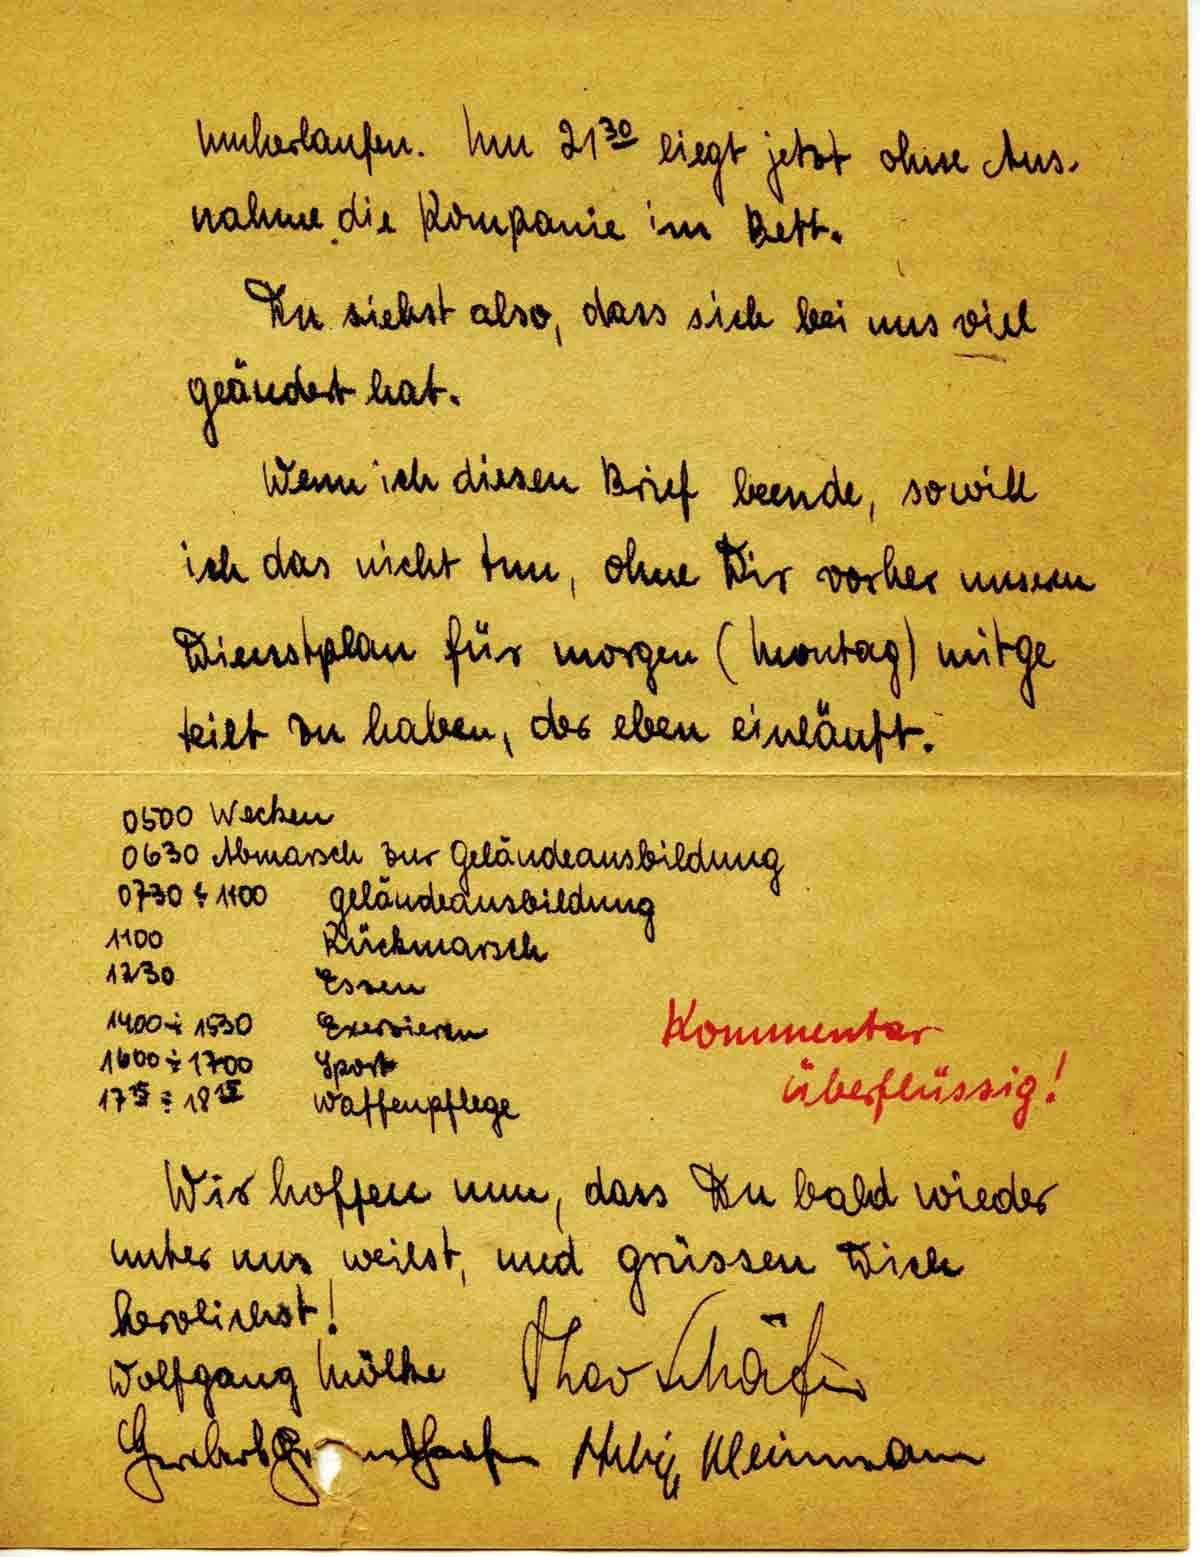 umherlaufen. Um 21³⁰ liegt jetzt ohne Aus-
nahme die Kompanie im Bett.
Du siehst also, dass sich bei uns viel
geändert hat.
Wenn ich diesen Brief beende, so will
ich das nicht tun, ohne Dir vorher unseren
Dienstplan für morgen (Montag) mitge
teilt zu haben, der eben einläuft.
0500 Wecken
0630 Abmarsch zur Geländeausbildung
0730 ÷ 1100 Geländeausbildung
1100 Rückmarsch
1230 Essen
1400 ÷ 1530 Exerzieren
1600 ÷ 1700 Sport
17¹⁵ ÷ 18¹⁵ Waffenpflege
Kommentar
überflüssig!
Wir hoffen nun, dass Du bald wieder
unter uns weilst, und grüssen Dich
herzlichst!
Wolfgang Mölke Theo Schäfer
Kleinmann